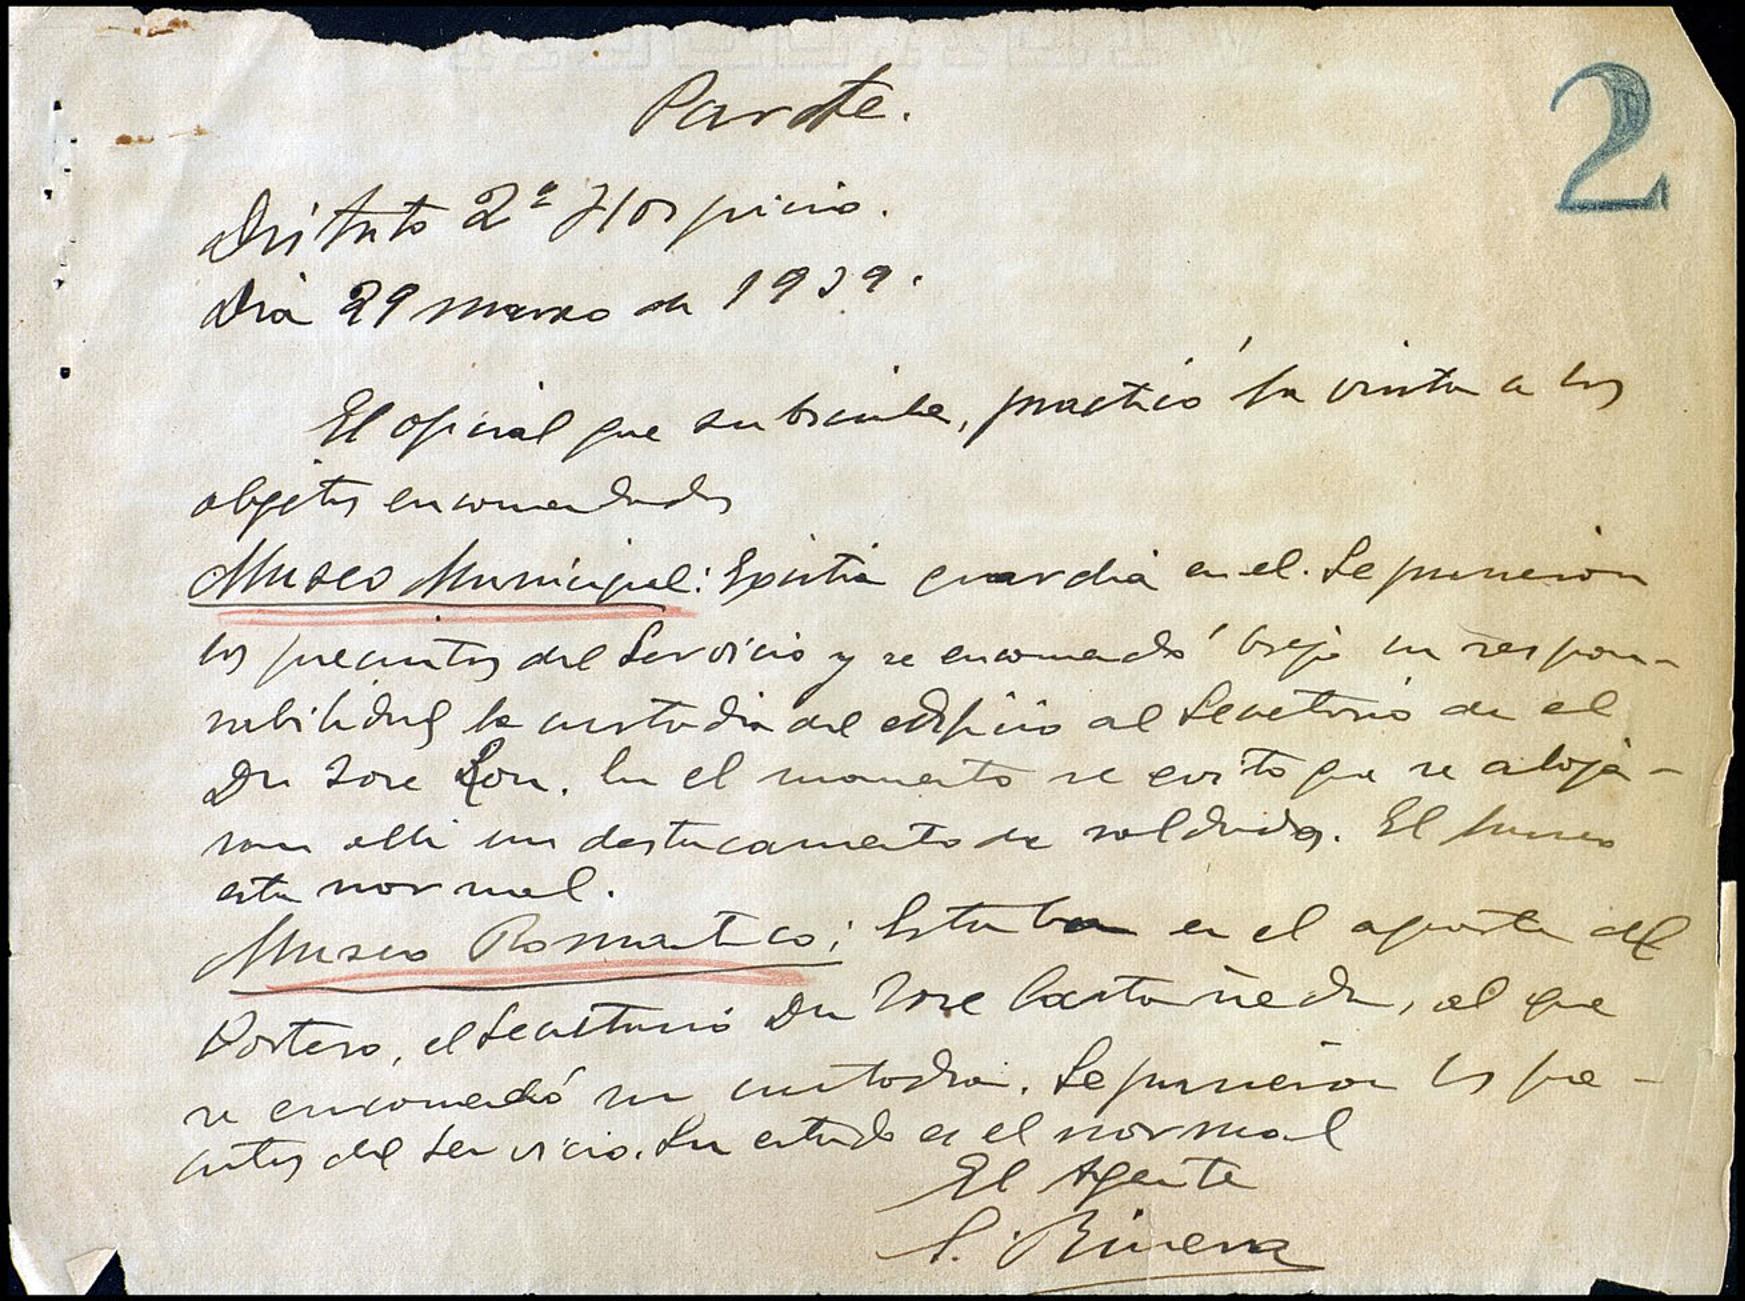 2
Parte.
Distrito 2º Hospicio.
Dia 29 marzo de 1939.
El oficial que subscribe, practicó la visita a los
objetos encomendados
Museo Municipal: Existia guardia en el. Se pusieron
los precintos del Servicio y se encomendó bajo su respon-
sabilidad la custodia del edificio al Secretario de el
Dn Jose . En el momento se evito que se aloja-
ran alli un destacamento de soldados. El museo
esta normal.
Museo Romantico: Estaba en el aposento del
Portero, el Secretario Dn Jose Castañeda, al que
se encomendó su custodia. Se pusieron los pre-
cintos del Servicio. Su estado es el normal
El Agente
Rivera